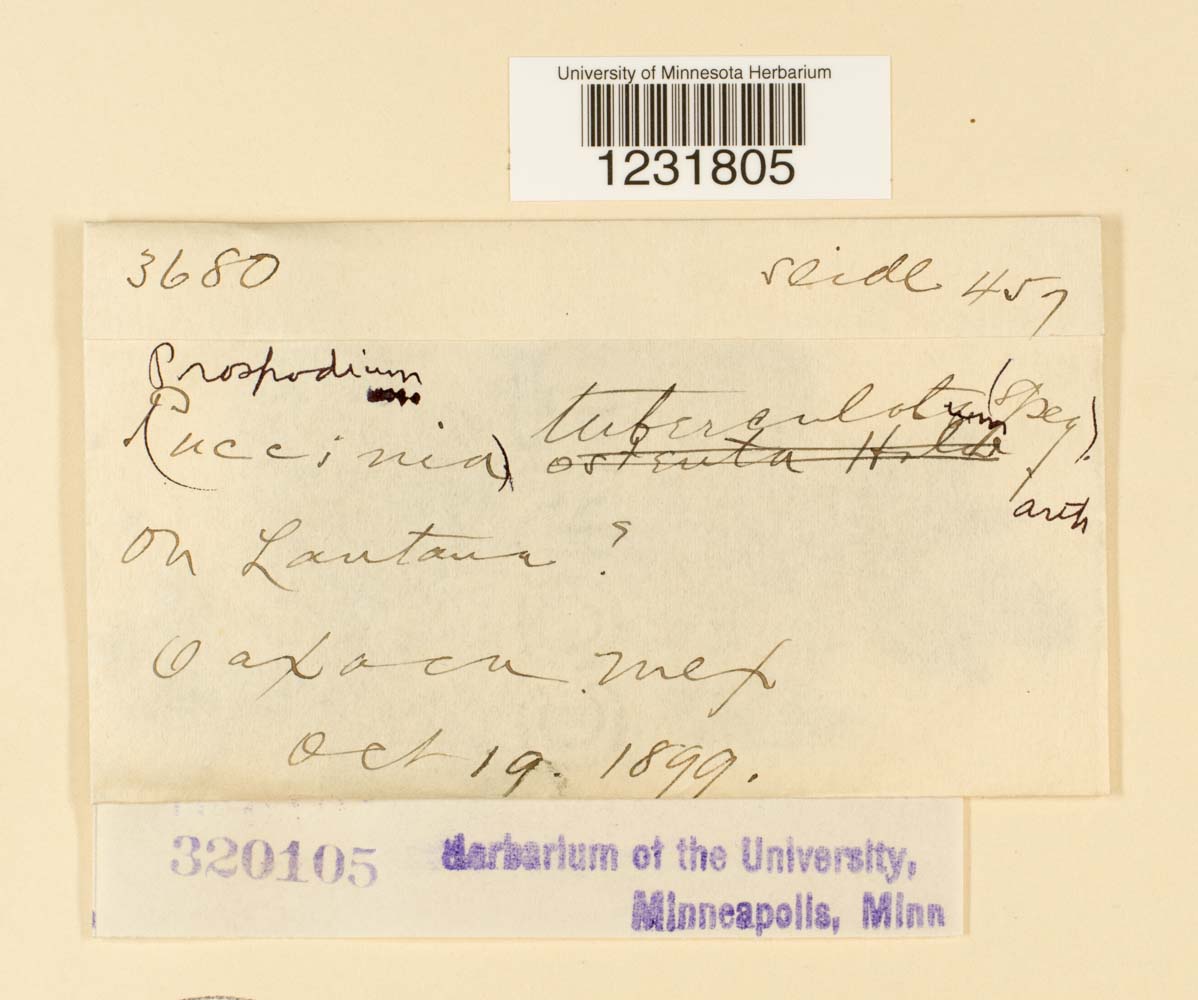 University of Minnesota Herbarium
1231805
3680 seidl 457
Prospodium
(Puccinia) tuberculatum (Speg).
ostenta Hold
arth
on Lantana ?
Oaxaca Mex
Oct 19. 1899.
320105 Herbarium of the University,
Minneapolis, Minn